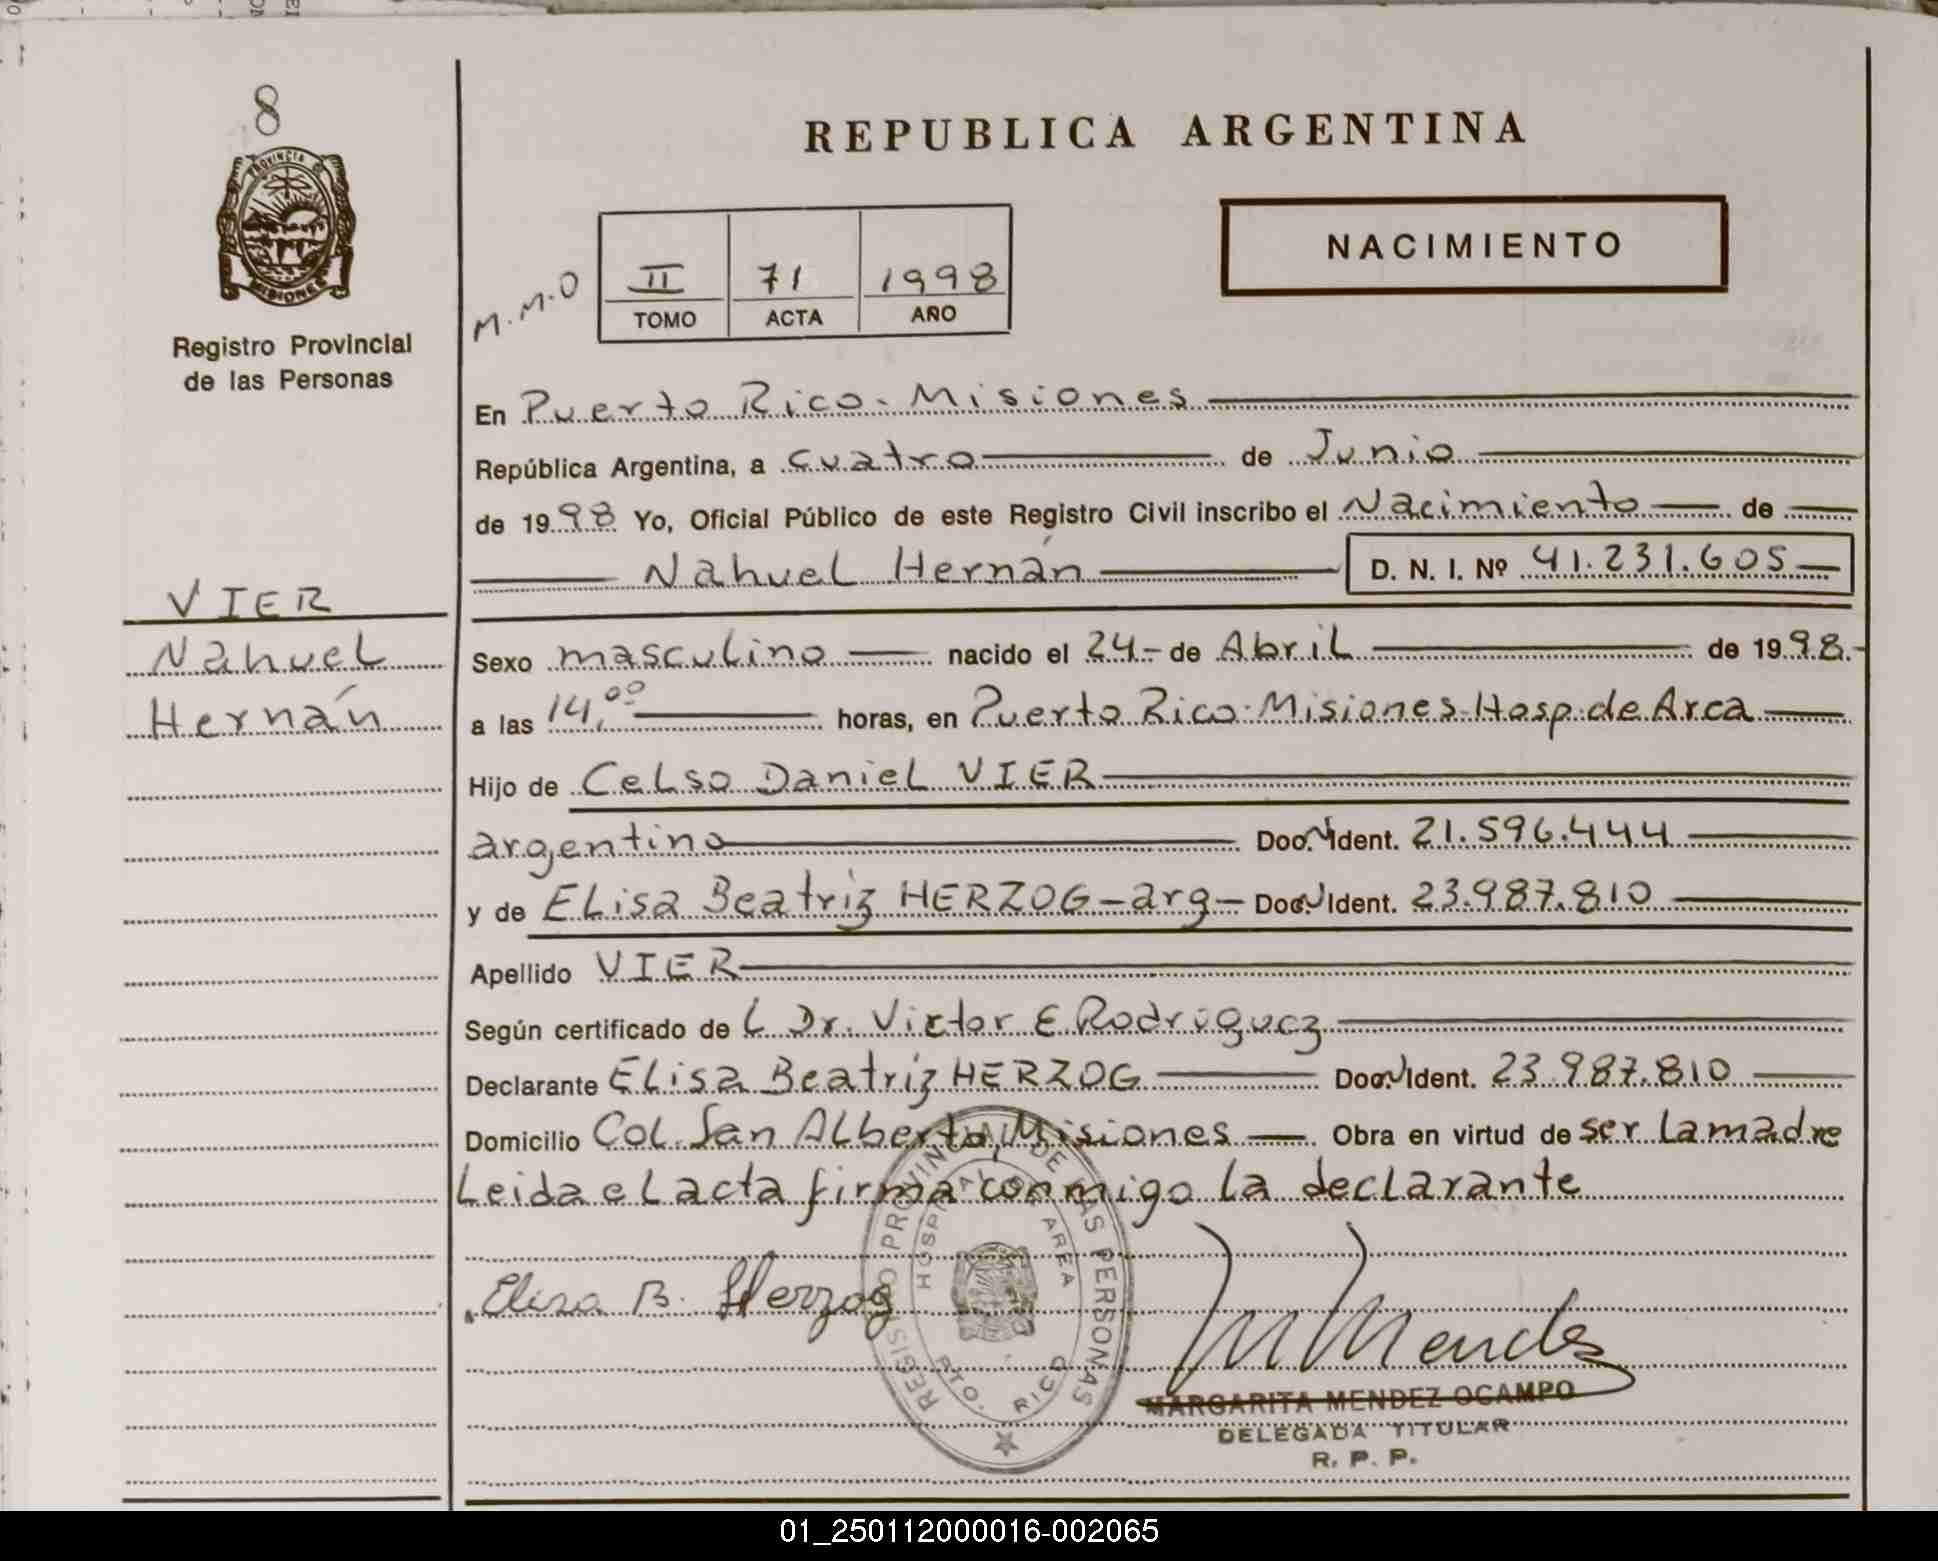 8
PROVINCIA DE
MISIONES
Registro Provincial
de las Personas
REPUBLICA ARGENTINA
NACIMIENTO
M.M.O
II 71 1998
TOMO ACTA AÑO
En Puerto Rico - Misiones
República Argentina, a cuatro de Junio
de 1998 Yo, Oficial Público de este Registro Civil inscribo el Nacimiento de
Nahuel Hernán D. N. I. Nº 41.231.605
VIER
Nahuel
Hernán
Sexo masculino nacido el 24 - de Abril de 1998.-
a las 14,00 horas, en Puerto Rico - Misiones - Hosp. de Area
Hijo de Celso Daniel VIER
argentino Doc. Ident. 21.596.444
y de Elisa Beatriz HERZOG - arg - Doc. Ident. 23.987.810
Apellido VIER
Según certificado de L Dr. Victor E Rodriguez
Declarante Elisa Beatriz HERZOG Doc. Ident. 23.987.810
Domicilio Col. San Alberto, Misiones Obra en virtud de ser la madre
Leida el acta firma conmigo la declarante
Elisa B. Herzog
REGISTRO PROVINCIAL DE LAS PERSONAS
HOSPITAL DE AREA
PTO. RICO
M Mendez
MARGARITA MENDEZ OCAMPO
DELEGADA TITULAR
R. P. P.
01_250112000016-002065